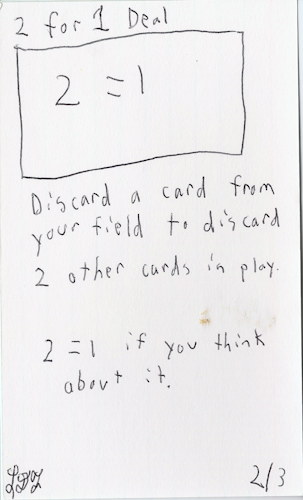 2 for 1 Deal
2 = 1
Discard a card from
your field to discard
2 other cards in play.
2 = 1 if you think
about it.
2/3